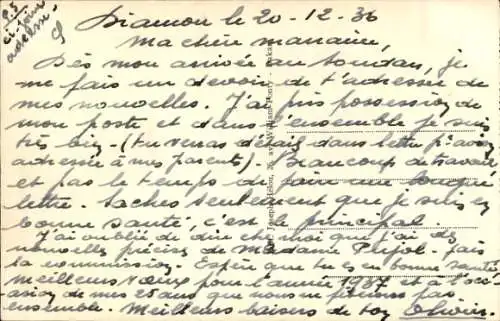 P.S.
ci-joint
adresse
Diamou le 20-12-36
Ma chère marraine,
Dès mon arrivée au Soudan, je
me fais un devoir de t'adresser de
mes nouvelles. J'ai pris possession de
mon poste et dans l'ensemble je suis
très bien (tu verras détails dans lettre
adressée à mes parents). Beaucoup de travail
et pas le temps de faire une longue
lettre. Saches seulement que je suis en
bonne santé, c'est le principal.
J'ai oublié de dire chez moi que j'ai des
nouvelles de Madame - fais
la commission. Espère que tu es en bonne santé
meilleurs vœux pour l'année 1937 et à l'occ-
asion de mes 25 ans que nous ne fêterons pas
ensemble. Meilleurs baisers de ton